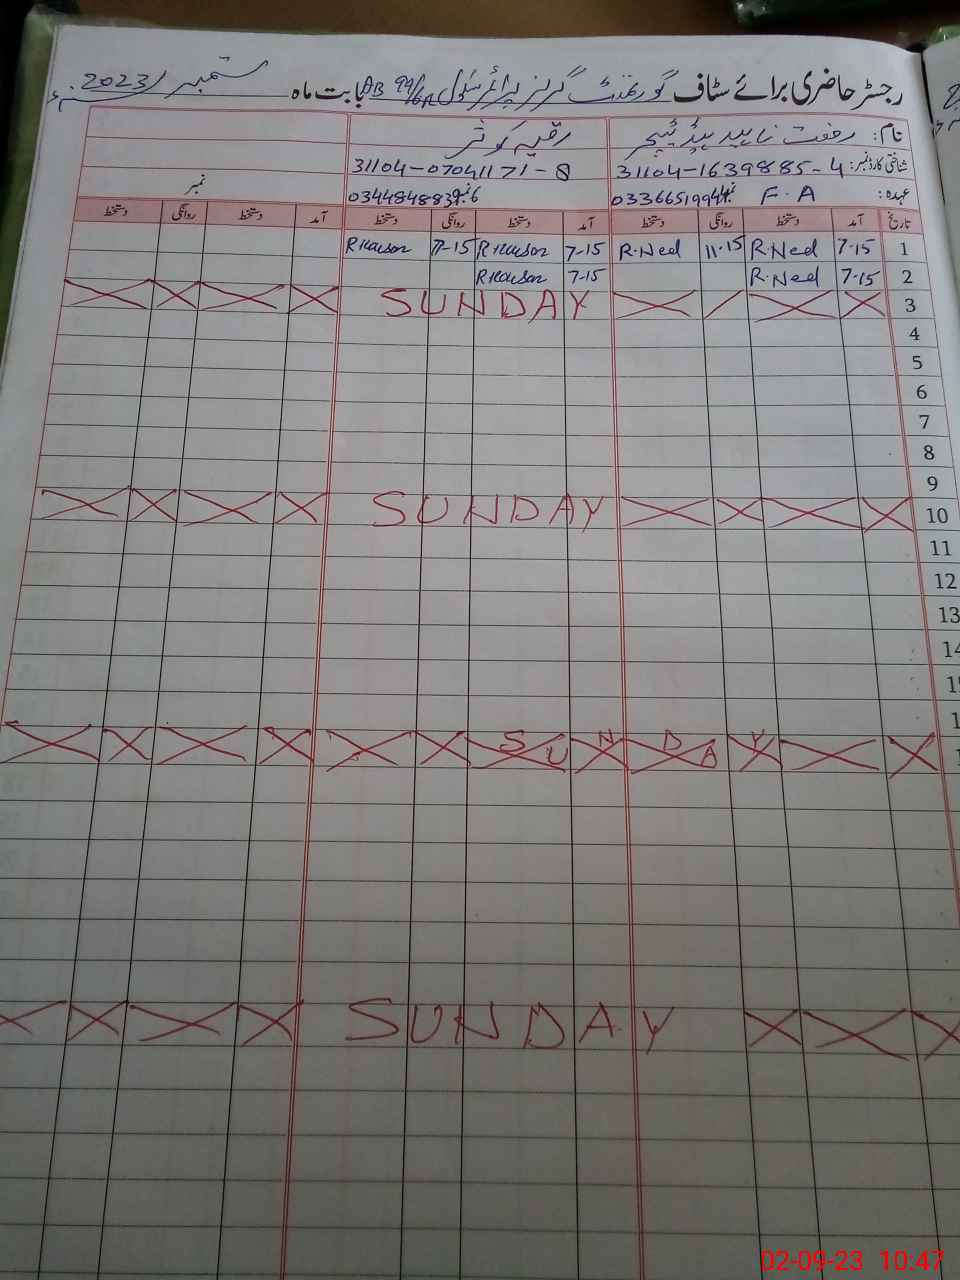 رجسٹر حاضری برائے سٹاف گورنمنٹ گرلز پرائمری سکول 99/6R AB بابت ماہ ستمبر / 2023ء
نام: رفعت ناہید ہیڈ ٹیچر رقیہ کوثر
شناختی کارڈ نمبر: 31104-1639885-4 31104-0704171-8
عہدہ: F.A نمبر نمبر نمبر
تاریخ آمد دستخط روانگی دستخط آمد دستخط روانگی دستخط آمد دستخط روانگی دستخط
1 7-15 R.Ned 11-15 R.Ned 7-15 R.Kausor 11-15 R.Kausor
2 7-15 R.Ned 7-15 R.Kausor
3 SUNDAY
4
5
6
7
8
9
10 SUNDAY
11
12
13
14
15
SUNDAY
SUNDAY
02-09-23 10:47